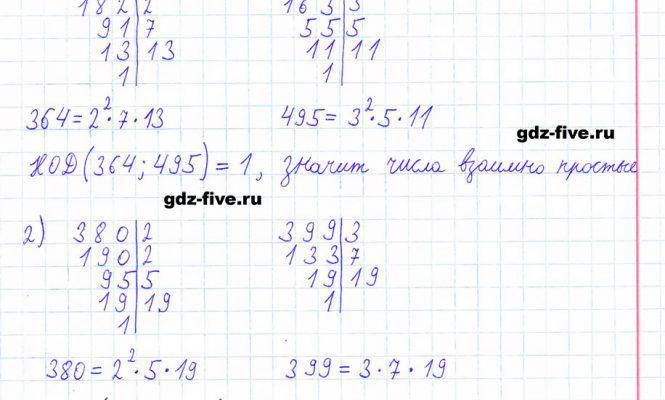 182|2 163|3
91|7 55|5
13|13 11|11
1| 1|
364 = 2²·7·13 495 = 3²·5·11
gdz-five.ru
НОД(364; 495) = 1, значит числа взаимно простые
gdz-five.ru
2) 380|2 399|3
190|2 133|7
95|5 19|19
19|19 1|
1|
380 = 2²·5·19 399 = 3·7·19